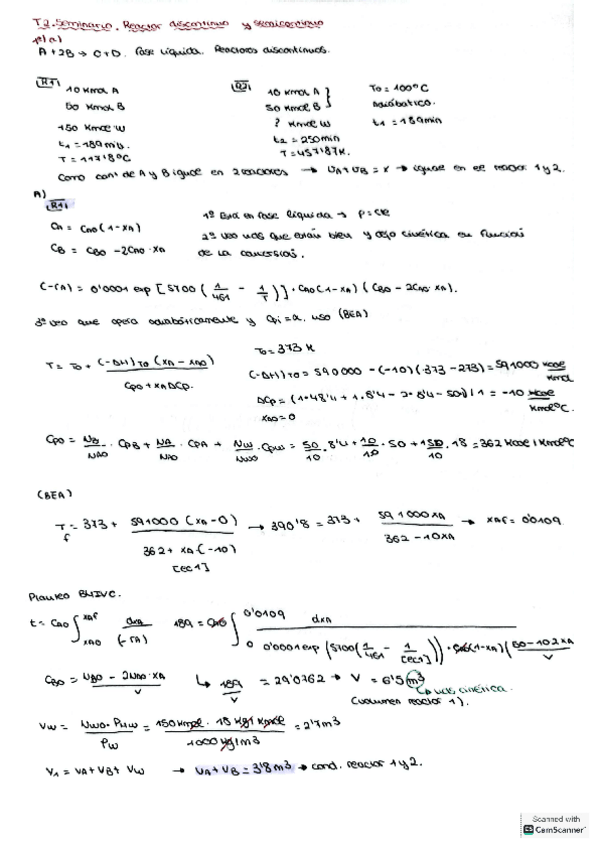 T2. Seminario. Reactor discontinuo y semicontinuo
1º) a)
A + 2B → C + D. Fase líquida. Reactores discontinuos.
R1
10 Kmol A
50 Kmol B
150 Kmol W
t1 = 189 min.
T = 117'8ºC
R2
10 Kmol A
50 Kmol B
? Kmol W
t2 = 250 min
T = 457'87K.
To = 100ºC
Adiabático.
t1 = 189 min
Como cant. de A y B igual en 2 reactores → VA + VB = x → igual en el reactor 1 y 2.
A)
R1
CA = CAO (1 - XA)
CB = CBO - 2CAO · XA
1º Está en fase líquida → ρ = cte
2º veo uds que están bien y dejo cinética en función
de la conversión.
(-rA) = 0'0001 exp [5700 (1/461 - 1/T)] · CAO (1 - XA) (CBO - 2CAO · XA).
3º veo que opera adiabáticamente y uso (BEA)
T = To + (-ΔH)TO (XA - XAO) / CPO + XA ΔCp.
To = 373 K
(-ΔH)TO = 590000 - (-10) (373 - 273) = 591000 Kcal/Kmol
ΔCp = (1·48'4 + 1·8'4 - 2·8'4 - 50)/1 = -10 Kcal/KmolºC.
XAO = 0
CPO = NB/NAO · CPB + NA/NAO · CPA + NW/NWO · CPW = 50/10 · 8'4 + 10/10 · 50 + 150/10 · 18 = 362 Kcal/KmolºC
(BEA)
Tf = 373 + 591000 (XA - 0) / 362 + XA (-10) [ec1] → 390'8 = 373 + 591000 XA / 362 - 10XA → XAf = 0'0109
Planteo BMIVC.
t = CAO ∫ XAO XAf dXA / (-rA) 189 = CAO ∫ 0 0'0109 dXA / 0'0001 exp (5700 (1/461 - 1/[ec1])) · CAO (1 - XA) (50 - 10·2XA / V)
CBO = NBO - 2NAO · XA / V ↳ 189/V = 29'0762 → V = 6'5 m3
↳ uds cinética.
(volumen reactor 1).
VW = NWO · PMW / ρW = 150 Kmol · 18 Kg/Kmol / 1000 Kg/m3 = 2'7 m3
V1 = VA + VB + VW → VA + VB = 3'8 m3 → cond. reactor 1 y 2.
Scanned with
CamScanner